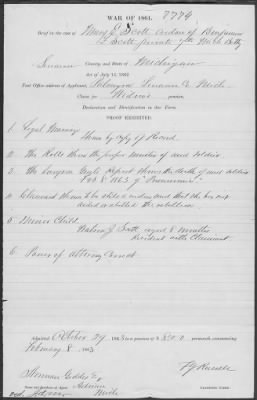 WAR OF 1861.
7779
Brief in the case of Mary E. Scott widow of Benjamin
F Scott private 7th Mich Batty
Lenawee County, and State of Michigan
Act of July 14, 1862
Post Office address of Applicant, Palmyra Lenawee Co Mich
Claim for Widows pension.
Declaration and Identification in due Form.
PROOF EXHIBITED:
1. Legal Marriage
Shown by Copy of Record.
2. The Rolls show the service of said soldier
3. The Surgeon Genls Report shows the death of said soldier
Feb 8 1863 of "Pneumonia".
4. Claimant shown to be still a widow and that she has not
aided or abetted the rebellion
5. Minor Child.
Scott aged 8 months
resident with Claimant
6. Power of Attorney Correct
Admitted October 29, 1863 to a pension of $ 8.00 per month, commencing
February 8. 1863
Name and Residence of Agent, Adrian
Mich
EXAMINING CLERK.